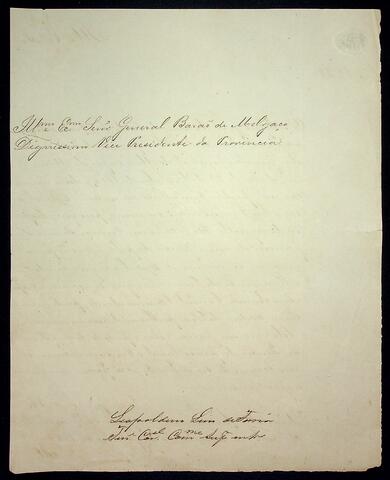 Illmo. e Exmo. Senr. General Barão de Melgaço
Digníssimo Vice Presidente da Provincia
Leopoldino Lino de Faria
Tene. Corel. Comme.